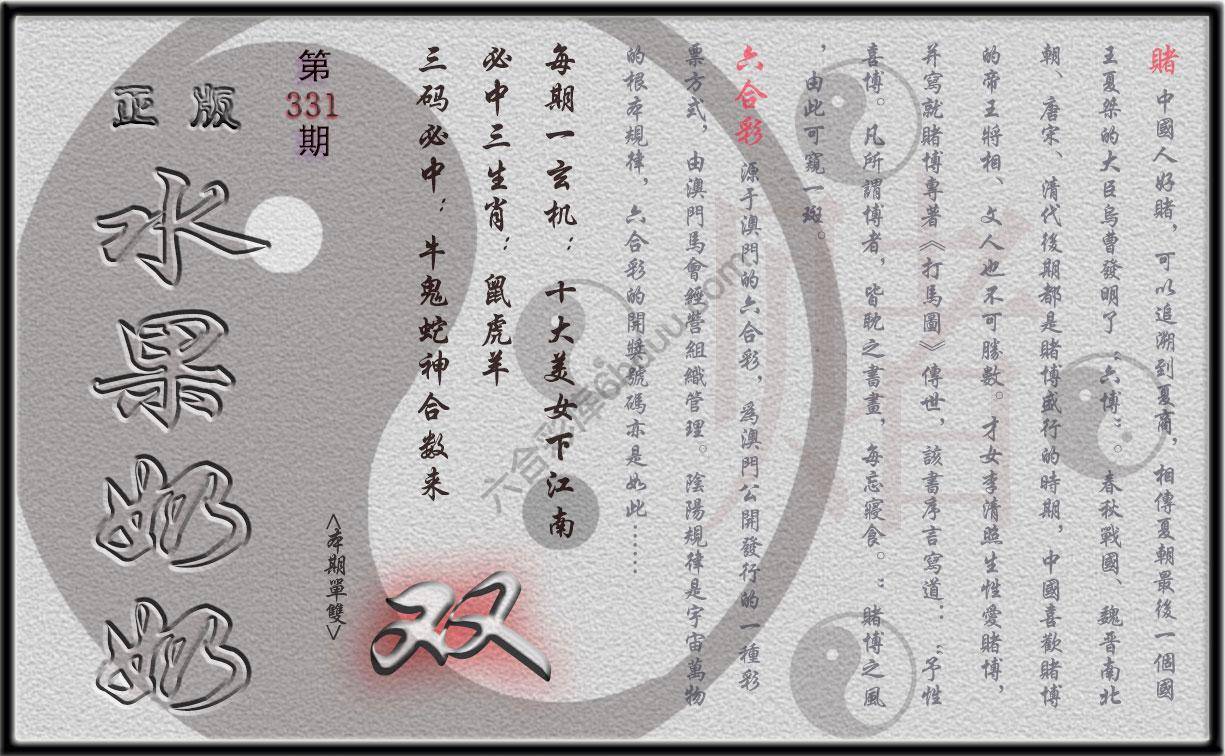 賭 中國人好賭，可以追溯到夏商，相傳夏朝最後一個國
王夏桀的大臣烏曹發明了“六博”。春秋戰國、魏晋南北
朝、唐宋、清代後期都是賭博盛行的時期，中國喜歡賭博
的帝王將相、文人也不可勝數。才女李清照生性愛賭博，
并寫就賭博專著《打馬圖》傳世，該書序言寫道：“予性
喜博。凡所謂博者，皆耽之書畫，每忘寢食。”賭博之風
，由此可窺一斑。
六合彩 源于澳門的六合彩，爲澳門公開發行的一種彩
票方式，由澳門馬會經營組織管理。陰陽規律是宇宙萬物
的根本規律，六合彩的開獎號碼亦是如此……
每期一玄机：十大美女下江南
必中三生肖：鼠虎羊
三码必中：牛鬼蛇神合数来
第
331
期
<本期單雙>
双
正版
水果奶奶